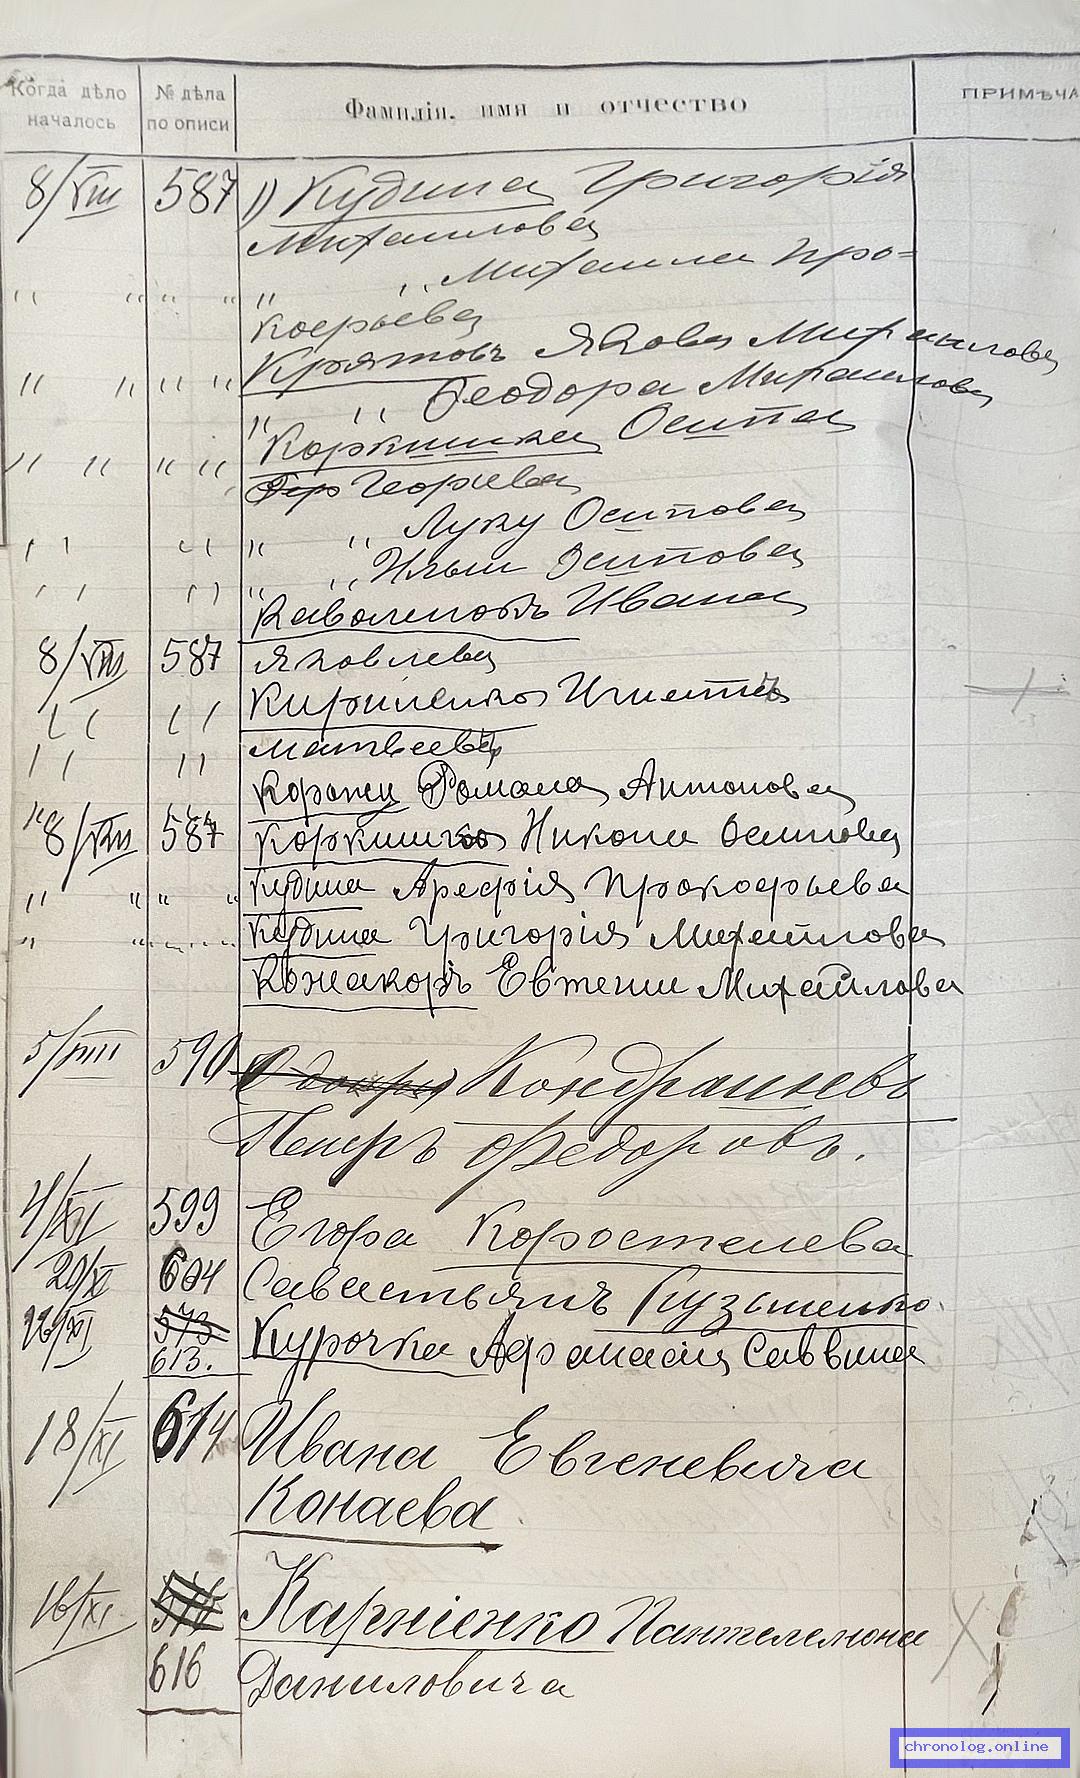 Когда дѣло началось № дѣла по описи Фамилія, имя и отчество ПРИМѢЧА
8/VIII 587 1) Кудина Григорія
Михаилова
" " " " " " Михаила Про=
кофьева
Крятовъ Якова Михаилова
" " " " " " Феодора Михаилова
Коркишка Осипа
" " " " Георгіева
" " Луку Осипова
" " Ильи Осипова
Иванa
8/VIII 587 Яковлева
Кириленко Игната
Матвеева
Коржа Романа Антонова
8/VIII 587 Коркишко Никона Осипова
" " " " Кудина Арефія Прокофьева
" " Кудина Григорія Михайлова
Евгения Михайлова
5/VIII 590 Кондрашевъ
Петръ Федоровъ.
4/XI 599 Егора Коростелева
20/XI 604 Савастьянъ Кузьменко.
16/XI 573 Курочка Афанасія Саввина
613.
18/XI 614 Ивана Евгеневича
Конаева
16/XI Карпіенко Пантелемона
616 Даниловича
chronolog.online